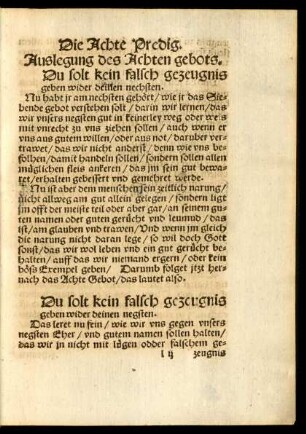 Die Achte Predig.
Auslegung des Achten gebots.
Du solt kein falsch gezeugnis
geben wider deinen nechsten.
Nu habt jr am nechsten gehört/ wie jr das Sie-
bende gebot verstehen solt/ darin wir lernen/ das
wir vnsers negsten gut in keinerley weg oder weis
mit vnrecht zu vns ziehen sollen/ auch wenn er
vns aus gutem willen/ oder aus not/ daruber ver-
trawet/ das wir nicht anderst/ denn wie vns be-
folhen/ damit handeln sollen/ sondern sollen allen
müglichen fleis ankeren/ das jm sein gut bewa-
ret/ erhalten gebessert vnd gemehret werde.
Nu ist aber dem menschen sein zeitlich narung/
nicht allweg am gut allein gelegen/ sondern ligt
jm offt der meiste teil oder aber gar/ an seinem gu-
ten namen oder guten gerücht vnd leumud/ das
ist/ am glauben vnd trawen/ Vnd wenn jm gleich
die narung nicht daran lege/ so wil doch Gott
sonst/ das wir wol leben vnd ein gut gerücht be-
halten/ auff das wir niemand ergern/ oder kein
böss Exempel geben/ Darumb folget jtzt her-
nach das Achte Gebot/ das lautet also.
Du solt kein falsch gezeugnis
geben wider deinen negsten.
Das leret nu fein/ wie wir vns gegen vnsers
negsten Eher/ vnd gutem namen sollen halten/
das wir jn nicht mit lügen odder falschem ge-
l ij zeugnis